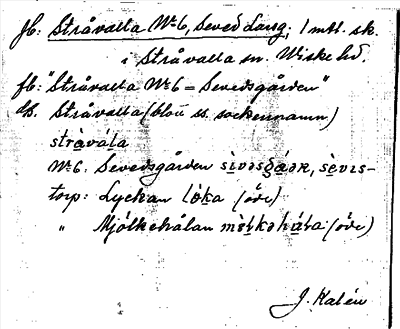 jb: Stråvalla No 6, Seved darg, 1 mtl. sk.
i Stråvalla sn. Wiske hd.
fb: "Stråvalla No 6 = Sevedsgården"
Stråvalla (blott ss. sockennamn)
stràvála
No 6. Sevedsgården sìvəsgáək, sèvis-
torp: Lyckan lö̀ka (öde)
" Mjölkehålan mö̀lkəhála (öde)
J. Kalén